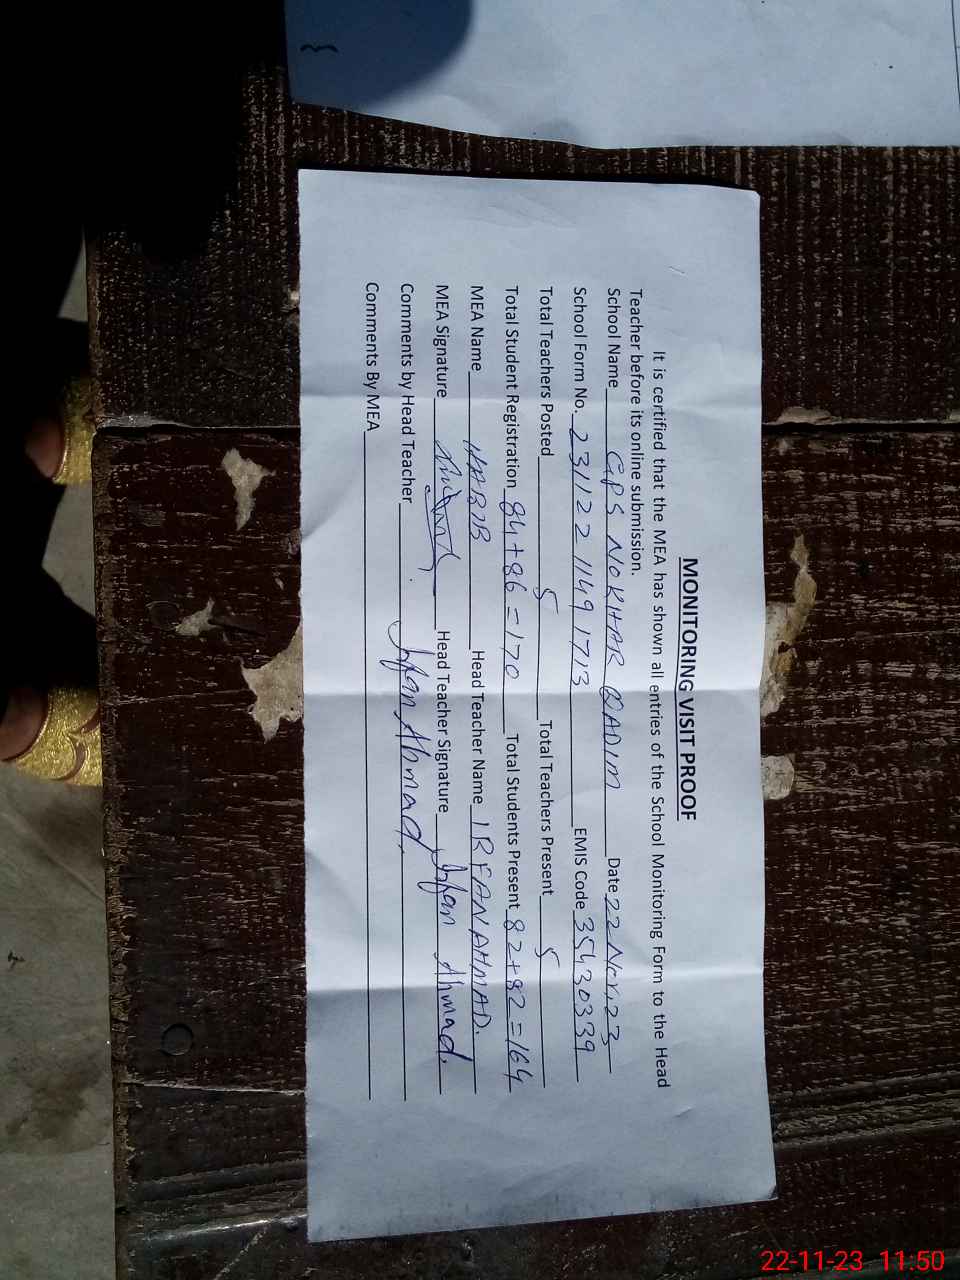 MONITORING VISIT PROOF
It is certified that the MEA has shown all entries of the School Monitoring Form to the Head
Teacher before its online submission.
School Name GPS NOKHAR QADIM Date 22 Nov. 23
School Form No. 231122 1149 1713 EMIS Code 35430339
Total Teachers Posted 5 Total Teachers Present 5
Total Student Registration 84+86=170 Total Students Present 82+82=164
MEA Name HABIB Head Teacher Name IRFAN AHMAD.
MEA Signature Head Teacher Signature Irfan Ahmad.
Comments by Head Teacher Irfan Ahmad.
Comments By MEA
22-11-23 11:50